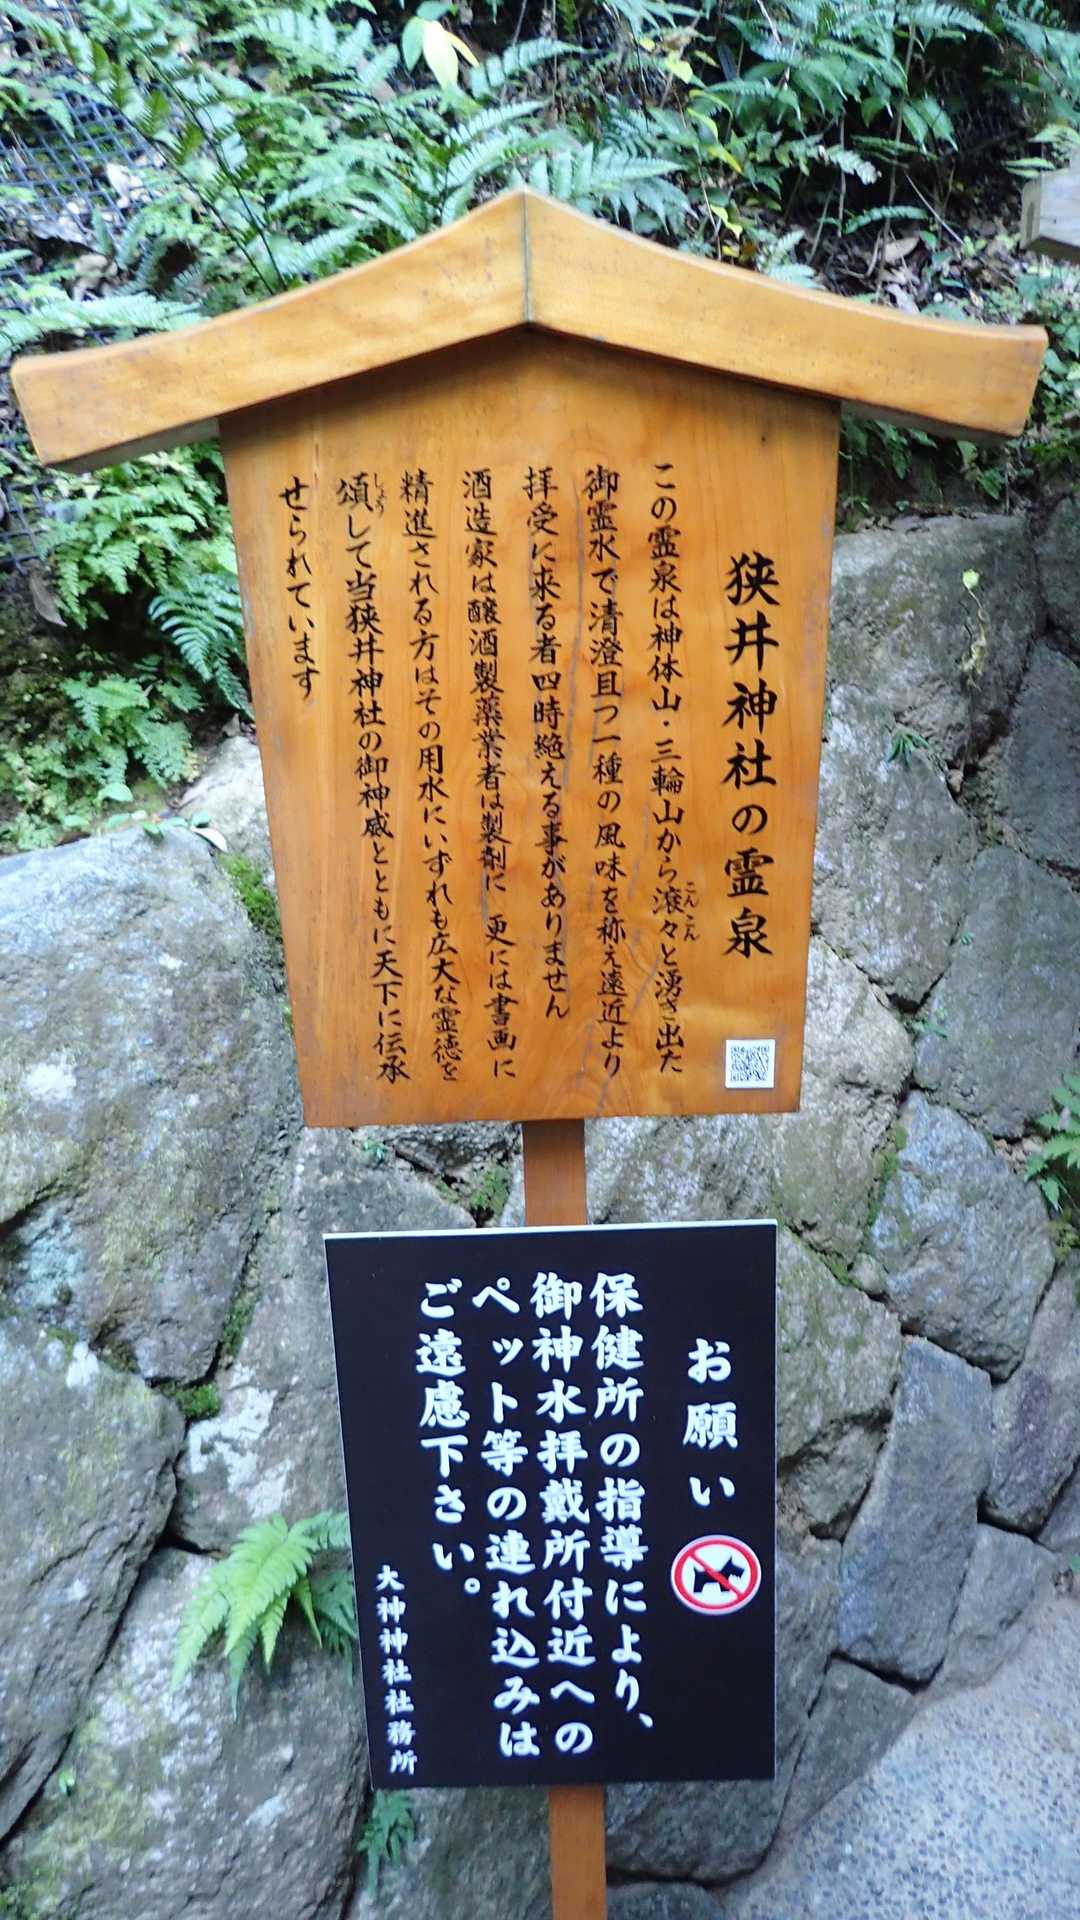 狭井神社の霊泉
この霊泉は神体山・三輪山から滾々と湧き出た
こんこん
御霊水で清澄且つ一種の風味を称え遠近より
拝受に来る者四時絶える事がありません
酒造家は醸酒製薬業者は製剤に 更には書画に
精進される方はその用水にいずれも広大な霊徳を
頌して当狭井神社の御神威とともに天下に伝承
しょう
せられています
お願い
保健所の指導により、
御神水拝戴所付近への
ペット等の連れ込みは
ご遠慮下さい。
大神神社社務所